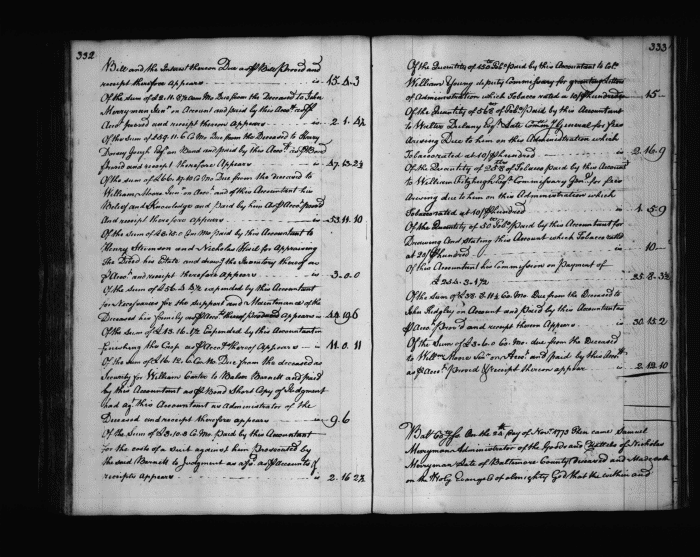 332
Bill and the Interest thereon Due as Bill proved and
receipt thereof appears is 15.4.3
Of the sum of £ 2.11.8½ Com Mo Due from the Deceased to John
Merryman Senr on Account and paid by this Acct as
Acct proved and receipt thereon appears is 2.1.4½
Of the sum of £59.11.6 C Mo Due from the Deceased to Henry
Dorsey Gough Esqr on Bond and paid by this Acct as Bond
proved and receipt therefore Appears is 47.13.2½
Of the sum of £66.17.10 C Mo Due from the deceased to
William Moore Senr on Acct and of this Accountant his
Belief and Knowledge and Paid by him as Acct proved
And receipt therefore appears is 53.11.10
Of the sum of £3.15.0 Com Mo paid by this Accountant to
Henry Stevenson and Nicholas for Appraising
the Dec'd his Estate and drawing the Inventory thereof as
Acct and receipt therefore appears is 3.0.0
Of the sum of £56.5.1½ expended by this Accountant
for Necessaries for the support and Maintenance of the
Deceased his family as Acct appears is 44.19.6
Of the Sum of £13.16.1½ Expended by this Accountant in
finishing the Crop as Acct thereof Appears is 11.0.11
Of the sum of £ 16.12.6 Co Mo Due from the deceased as
Security for William Carter to Barnett and paid
by this Accountant as Bond Short Copy of Judgment
had agt this Accountant as Administrator of the
Deceased and receipt therefore appears is 9.6
Of the Sum of £3.10.8 C Mo Paid by this Accountant
for the costs of a suit against him Prosecuted by
the said Barnett to Judgment as afsd as Account &
receipts appears is 2.16.2½
333
Of the Quantity of 150 lbs Tobo Paid by this Accountant to Col
William Young deputy Commissary for granting letters
of Administration which Tobacco rated a 10/ hundred is 15
Of the Quantity of 568 lbs of Tobo Paid by this Accountant
to Walter Dulany Esqr Late Comy General for fees
Arising Due to him on this Administration which
Tobacco rated at 10/ hundred is 2.16.9
Of the Quantity of 258 lbs of Tobacco paid by this Accountt
to William Esqr Commissary Genl for fees
Arising due to him on this Administration which
Tobacco rated at 10/ hundred is 1.5.9
Of the Quantity of 50 lbs Tobo paid by this Accountant for
Drawing and stating this Account which Tobacco rated
at 20/ hundred is 10
Of this Accountant his Commission on Payment of
£ 254.3.1½ 25.8.3½
Of the Sum of £38.8.11¼ Co Mo. Due from the Deceased to
John Ridgley on Account and Paid by this Accountant
Acct Prov'd and receipt thereon Appears is 30.15.2
Of the Sum of £ 3.6.0 Co Mo. due from the Deceased
to Willm Moore Senr on Acct and paid by this Acct
as Acct proved & receipt thereon appear is 2.12.10
Balt Co ss On the 24th Day of Novr 1773 Then came Samuel
Merryman Administrator of the Goods and Chattels of Nicholas
Merryman Late of Baltimore County Deceased and Made oath
on the Holy Evangels of almighty God that the within and